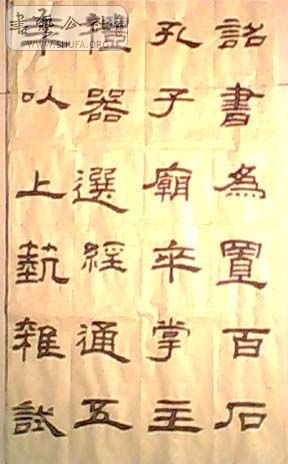 詔書為置百石
孔子廟卒掌主
器選經通五
以上蓺雜試
書藝公社
WWW.SHUFA.ORG